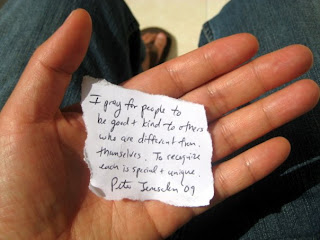 I pray for people to
be good + kind to others
who are different than
themselves. To recognize
each is special + unique.
Peter '09